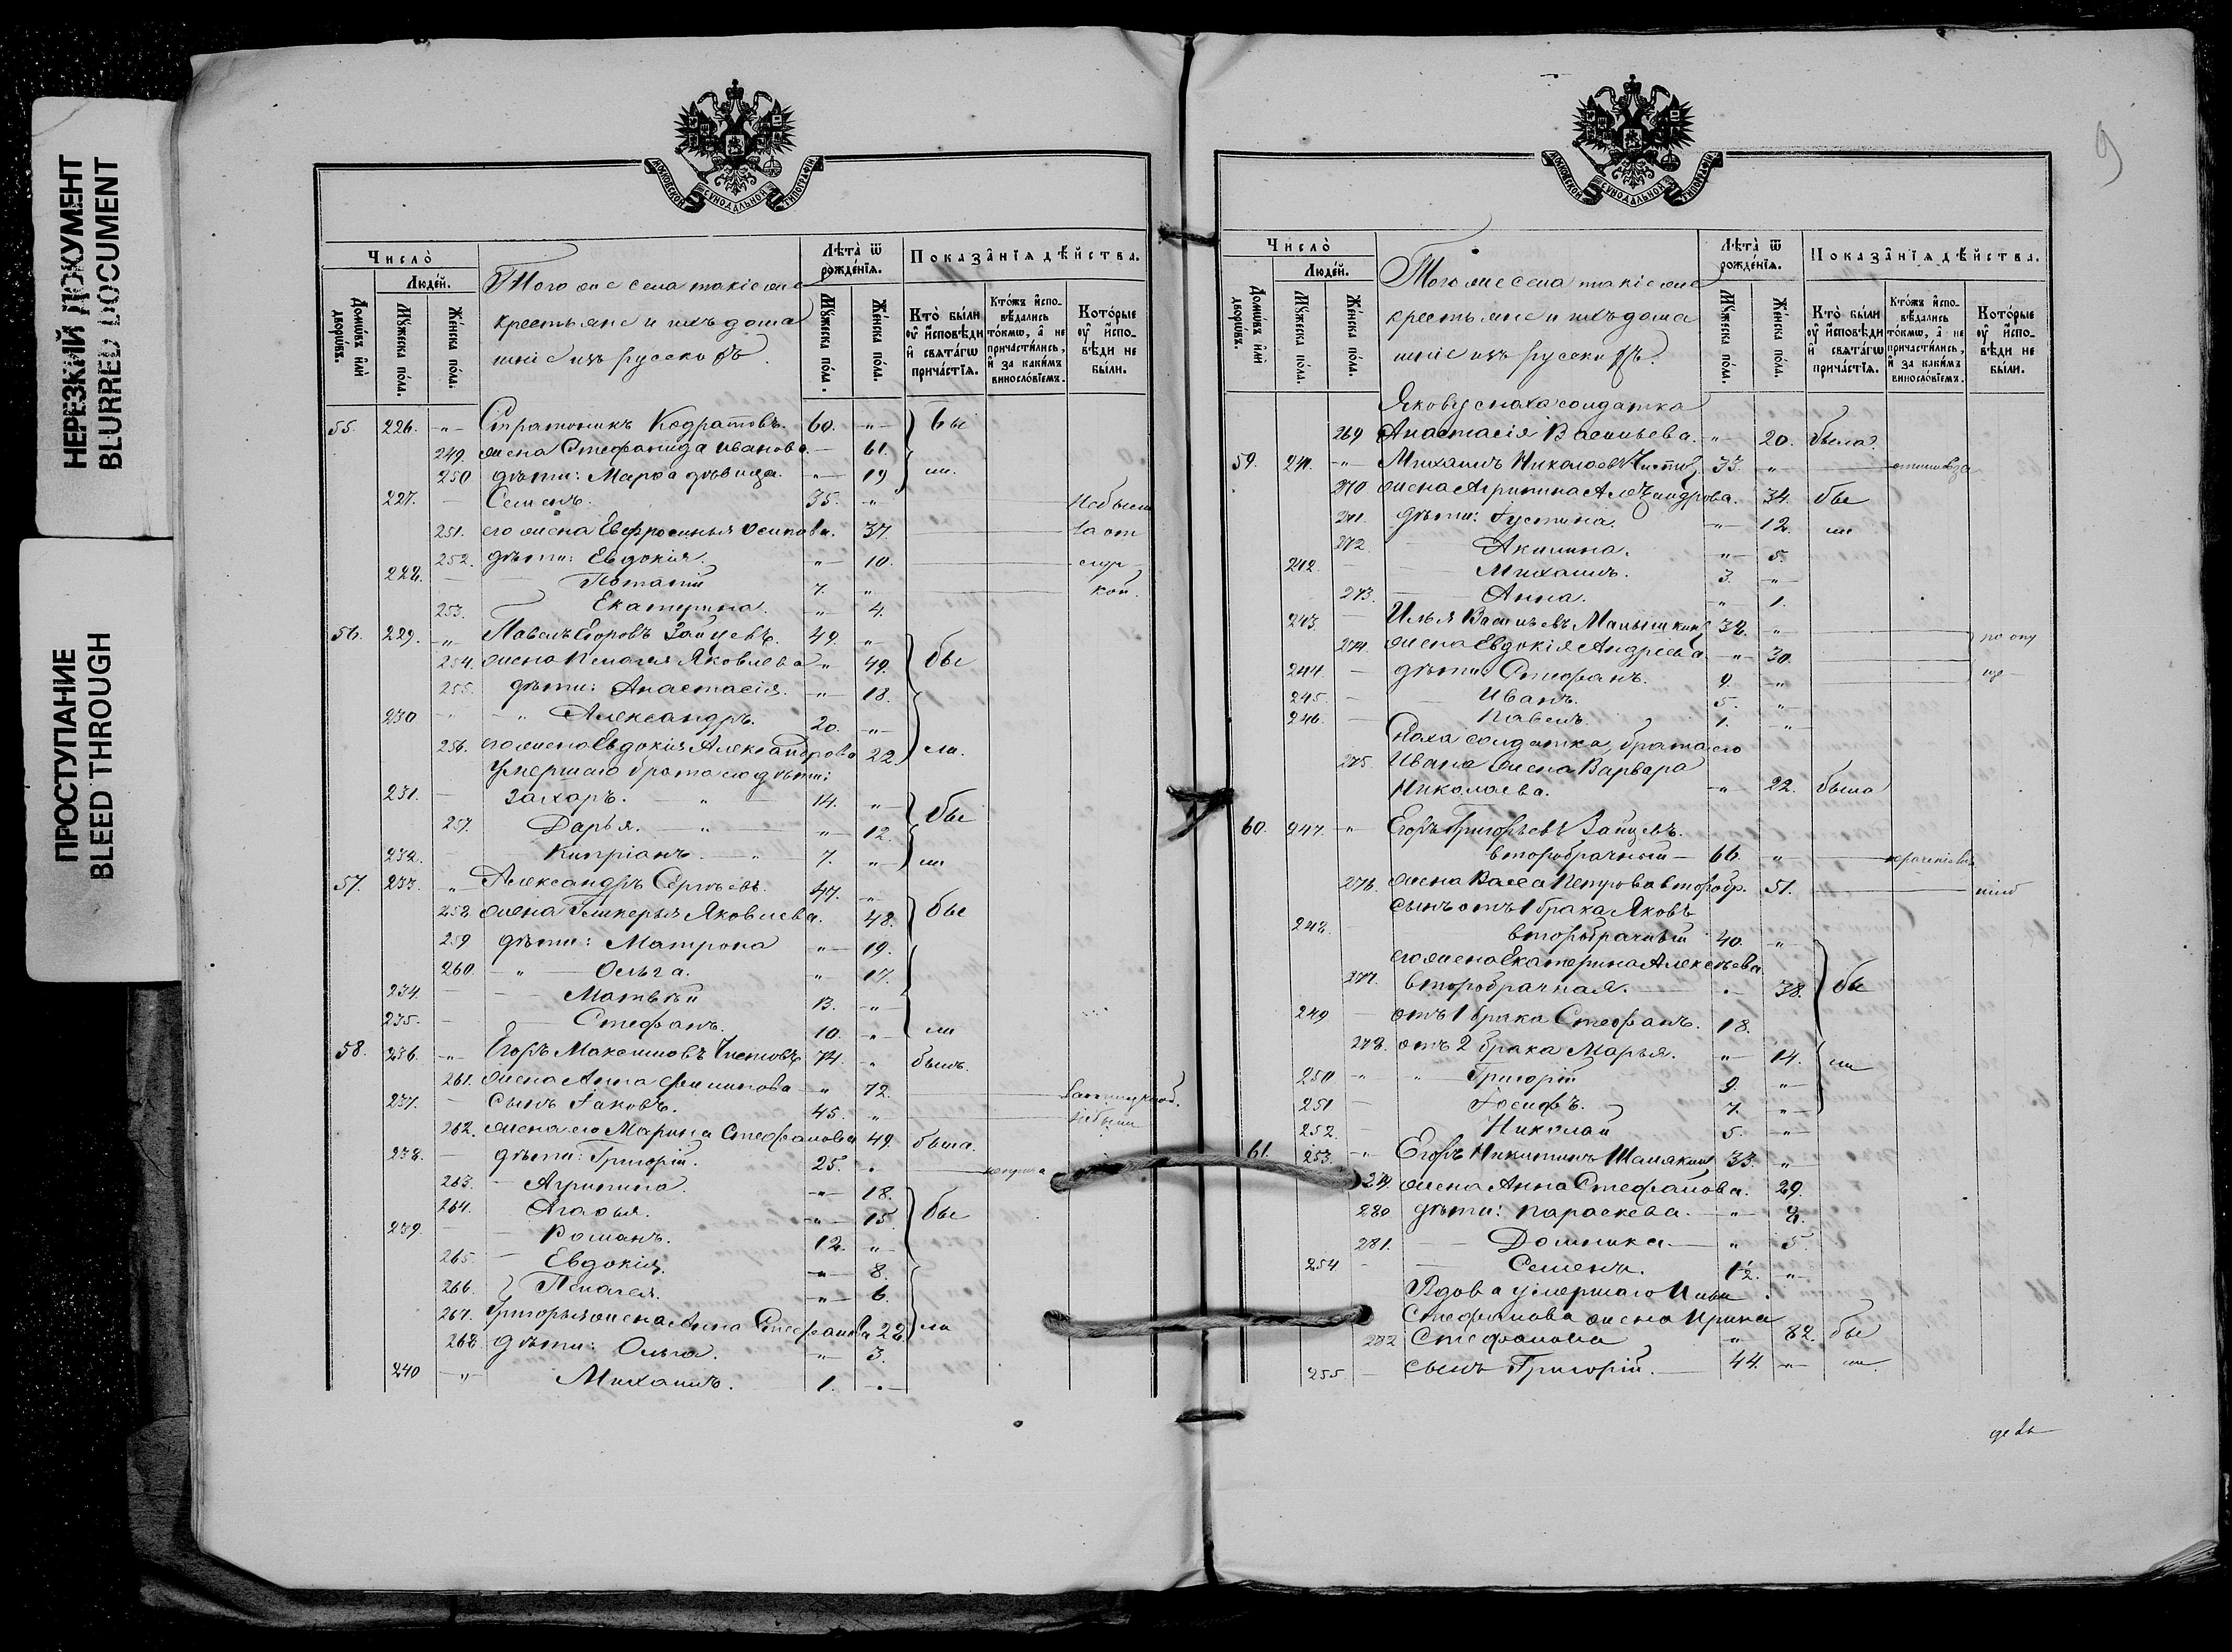 НЕРЕЗКИЙ ДОКУМЕНТ
BLURRED DOCUMENT
ПРОСТУПАНИЕ
BLEED THROUGH
МОСКОВСКОЙ СѴНОДАЛЬНОЙ ТИПОГРАФІИ
Число̀
Домѡ́въ и҆лѝ дворѡ́въ.
Люде́й.
Мꙋ́жеска по́ла.
Же́нска по́ла.
Того же села такіе же
крестьяне и ихъ дома
шніе изъ русскихъ.
Лѣта̀ ѿ рожде́нїѧ.
Мꙋ́жеска по́ла.
Же́нска по́ла.
Показа̑нїѧ дѣ́йства.
Кто̀ бы́ли оу҆ и҆сповѣ́ди и҆ свѧта́гѡ прича́стїѧ.
Кто́жъ и҆спо-вѣ́дались то́кмѡ, а҆ не причасти́лись, и҆ за каки́мъ винословїемъ.
Кото́рые оу҆ и҆спо-вѣ́ди не бы́ли.
55. 226. -"- Стратоникъ Кодратовъ. 60. -"- бы
249. жена Стефанида Иванова - 61.
250 дѣти: Марѳа дѣвица. -"- 19 ли.
227. - Семенъ. 35. -"- Не были
251. его жена Евфросинья Осипова. 37. за от
252. дѣти: Евдокія. -"- 10. луч
228. - Потапій 7. " кой.
253. Екатерина. -"- 4.
56. 229. -"- Павелъ Егоровъ Зайцевъ. 49. -"-
254. жена Пелагея Яковлева " 49. бы
255. дѣти: Анастасія. -"- 18.
230 -"- Александръ. 20. -"-
256. его жена Евдокія Александрова 22. ли.
Умершаго брата его дѣти:
231. - Захаръ. -"- 14. -"-
257. Дарья. -"- -"- 12. бы
232. - Кипріанъ. -"- 7. -"- ли
57. 233. -"- Александръ Сергѣевъ. 47. -"-
258 жена Гликерья Яковлева. 48. бы
259 дѣти: Матрона -"- 19.
260. -"- Ольга. -"- 17.
234. - Матвѣй 13. -"-
235. - Стефанъ. 10. -"- ли
58. 236. -"- Егоръ Максимовъ Чистовъ 74. " былъ.
261. жена Анна Филипова -"- 72.
237. - сынъ Іаковъ. 45. -"- не были
262. жена его Марина Стефанова 49. была.
238. - дѣти: Григорій. 25. "
263. - Агрипина. -"- 18.
264. Агаѳья. -"- 15 бы
239. - Романъ. 12. -"-
265. - Евдокія. -"- 8.
266. Пелагея. -"- 6.
267. Григорья жена Анна Стефанова 22 ли
268 дѣти: Ольга. -"- 3.
240 -"- Михаилъ. 1. -"-
9
МОСКОВСКОЙ СѴНОДАЛЬНОЙ ТИПОГРАФІИ
Число̀
Домѡ́въ и҆лѝ дворѡ́въ.
Люде́й.
Мꙋ́жеска по́ла.
Же́нска по́ла.
Того же села такіе же
крестьяне и ихъ дома
шніе изъ русскихъ.
Лѣта̀ ѿ рожде́нїѧ.
Мꙋ́жеска по́ла.
Же́нска по́ла.
Показа̑нїѧ дѣ́йства.
Кто̀ бы́ли оу҆ и҆сповѣ́ди и҆ свѧта́гѡ прича́стїѧ.
Кто́жъ и҆спо-вѣ́дались то́кмѡ, а҆ не причасти́лись, и҆ за каки́мъ винословїемъ.
Кото́рые оу҆ и҆спо-вѣ́ди не бы́ли.
Якову сноха солдатка
269 Анастасія Васильева. " 20. была
59. 241. -"- Михаилъ Николаевъ Чистовъ 33. -"-
270 жена Агрипина Александрова. 34. бы
271. дѣти: Іустина. -"- 12. ли
272. Акилина. -"- 5.
242. - Михаилъ. 3. -"-
273. Анна. " 1.
243. - Илья Васильевъ Малышкинъ 32. -"-
274. жена Евдокія Андреева. -"- 30.
244. - дѣти: Стефанъ. 9. -"-
245. - Иванъ. 5. -"-
246. - Павелъ. 1. -"-
Сноха солдатка, брата его
275. Ивана жена Варвара
Николаева. -"- 22. была
60. 247. -"- Егоръ Григорьевъ Зайцевъ.
второбрачный - 66. -"-
276. жена Васса Петрова второбр. 51.
сынъ отъ 1 брака Яковъ
248. - второбрачный 40. -"-
его жена Екатерина Алексѣева
277. второбрачная. - 38. бы
249 - отъ 1 брака Стефанъ. 18.
278. отъ 2 брака Марья. -"- 14. ли
250 -"- Григорій 9. -"-
251 - Іосифъ. 7. -"-
252. - Николай 5. -"-
61. 253. -"- Егоръ Никитинъ Шалякинъ 33. -"-
279. жена Анна Стефанова. 29.
280 дѣти: Параскева. -"- 8.
281. Домника -"- 5.
254 - Семенъ. 1½. -"-
Вдова умершаго Ильи
Стефанова жена Ирина
282 Стефанова " 82. бы
255 - сынъ Григорій. 44. -"- ли